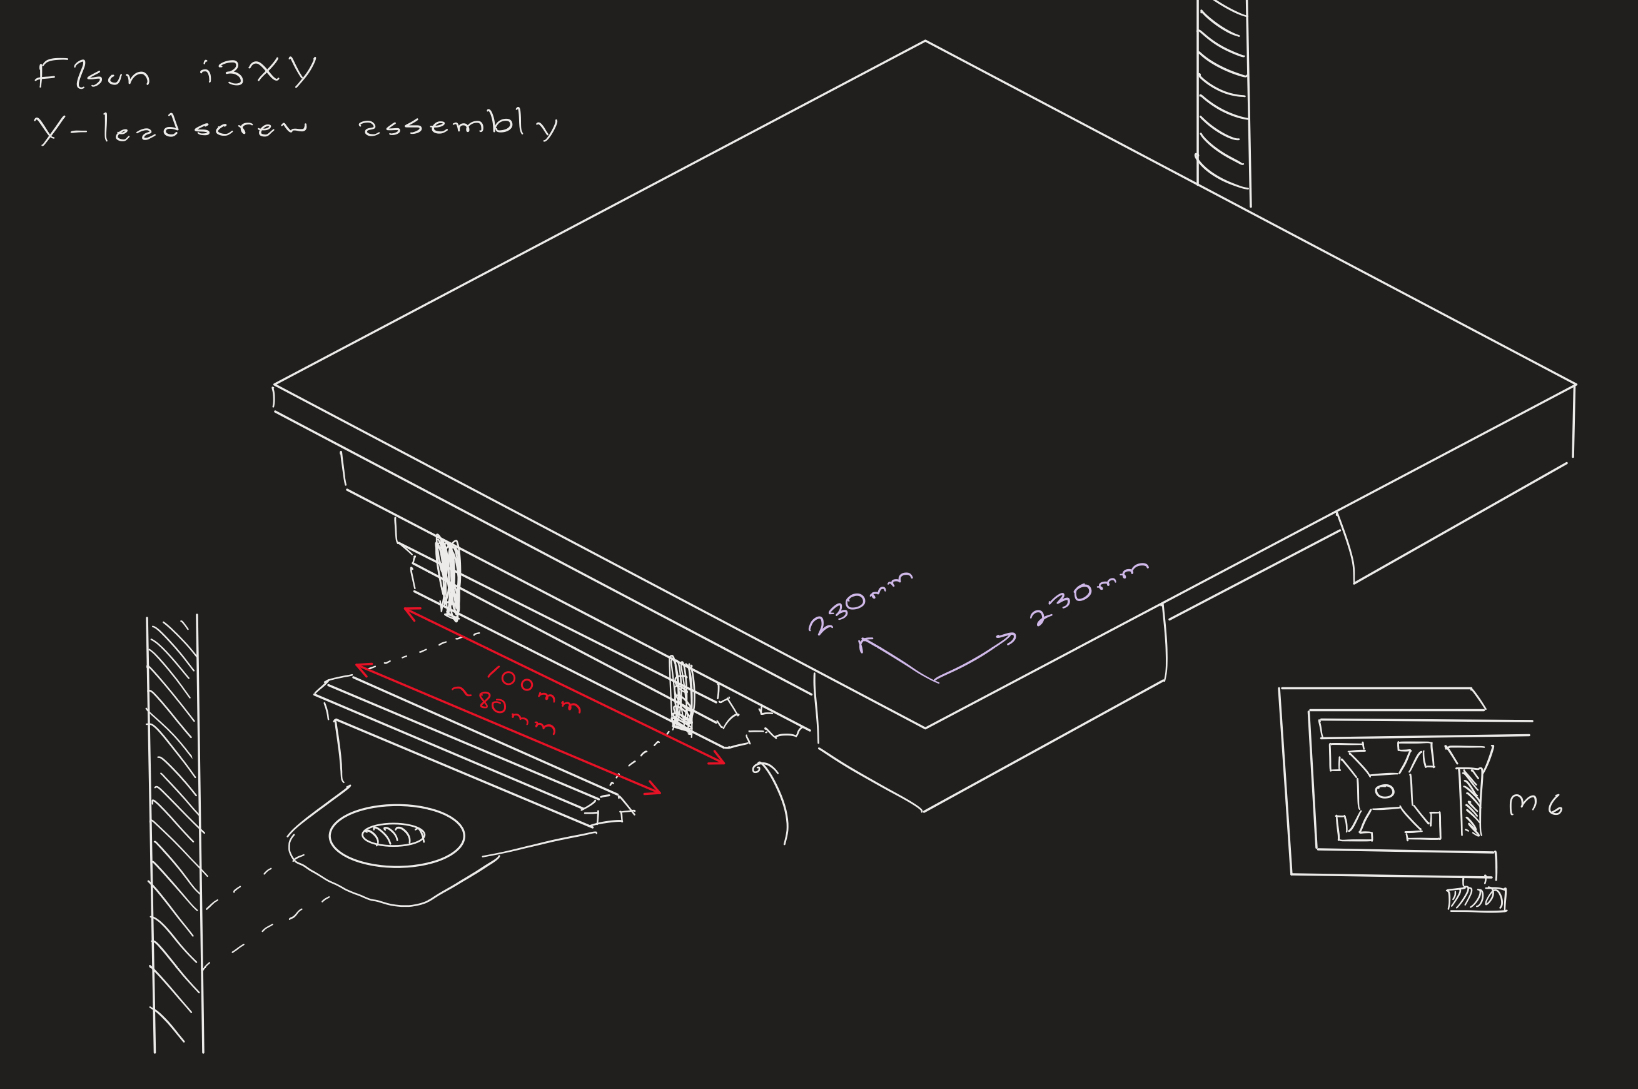 Flsun i3XY
Y-leadscrew assembly
230mm
230mm
100mm
~80mm
M6